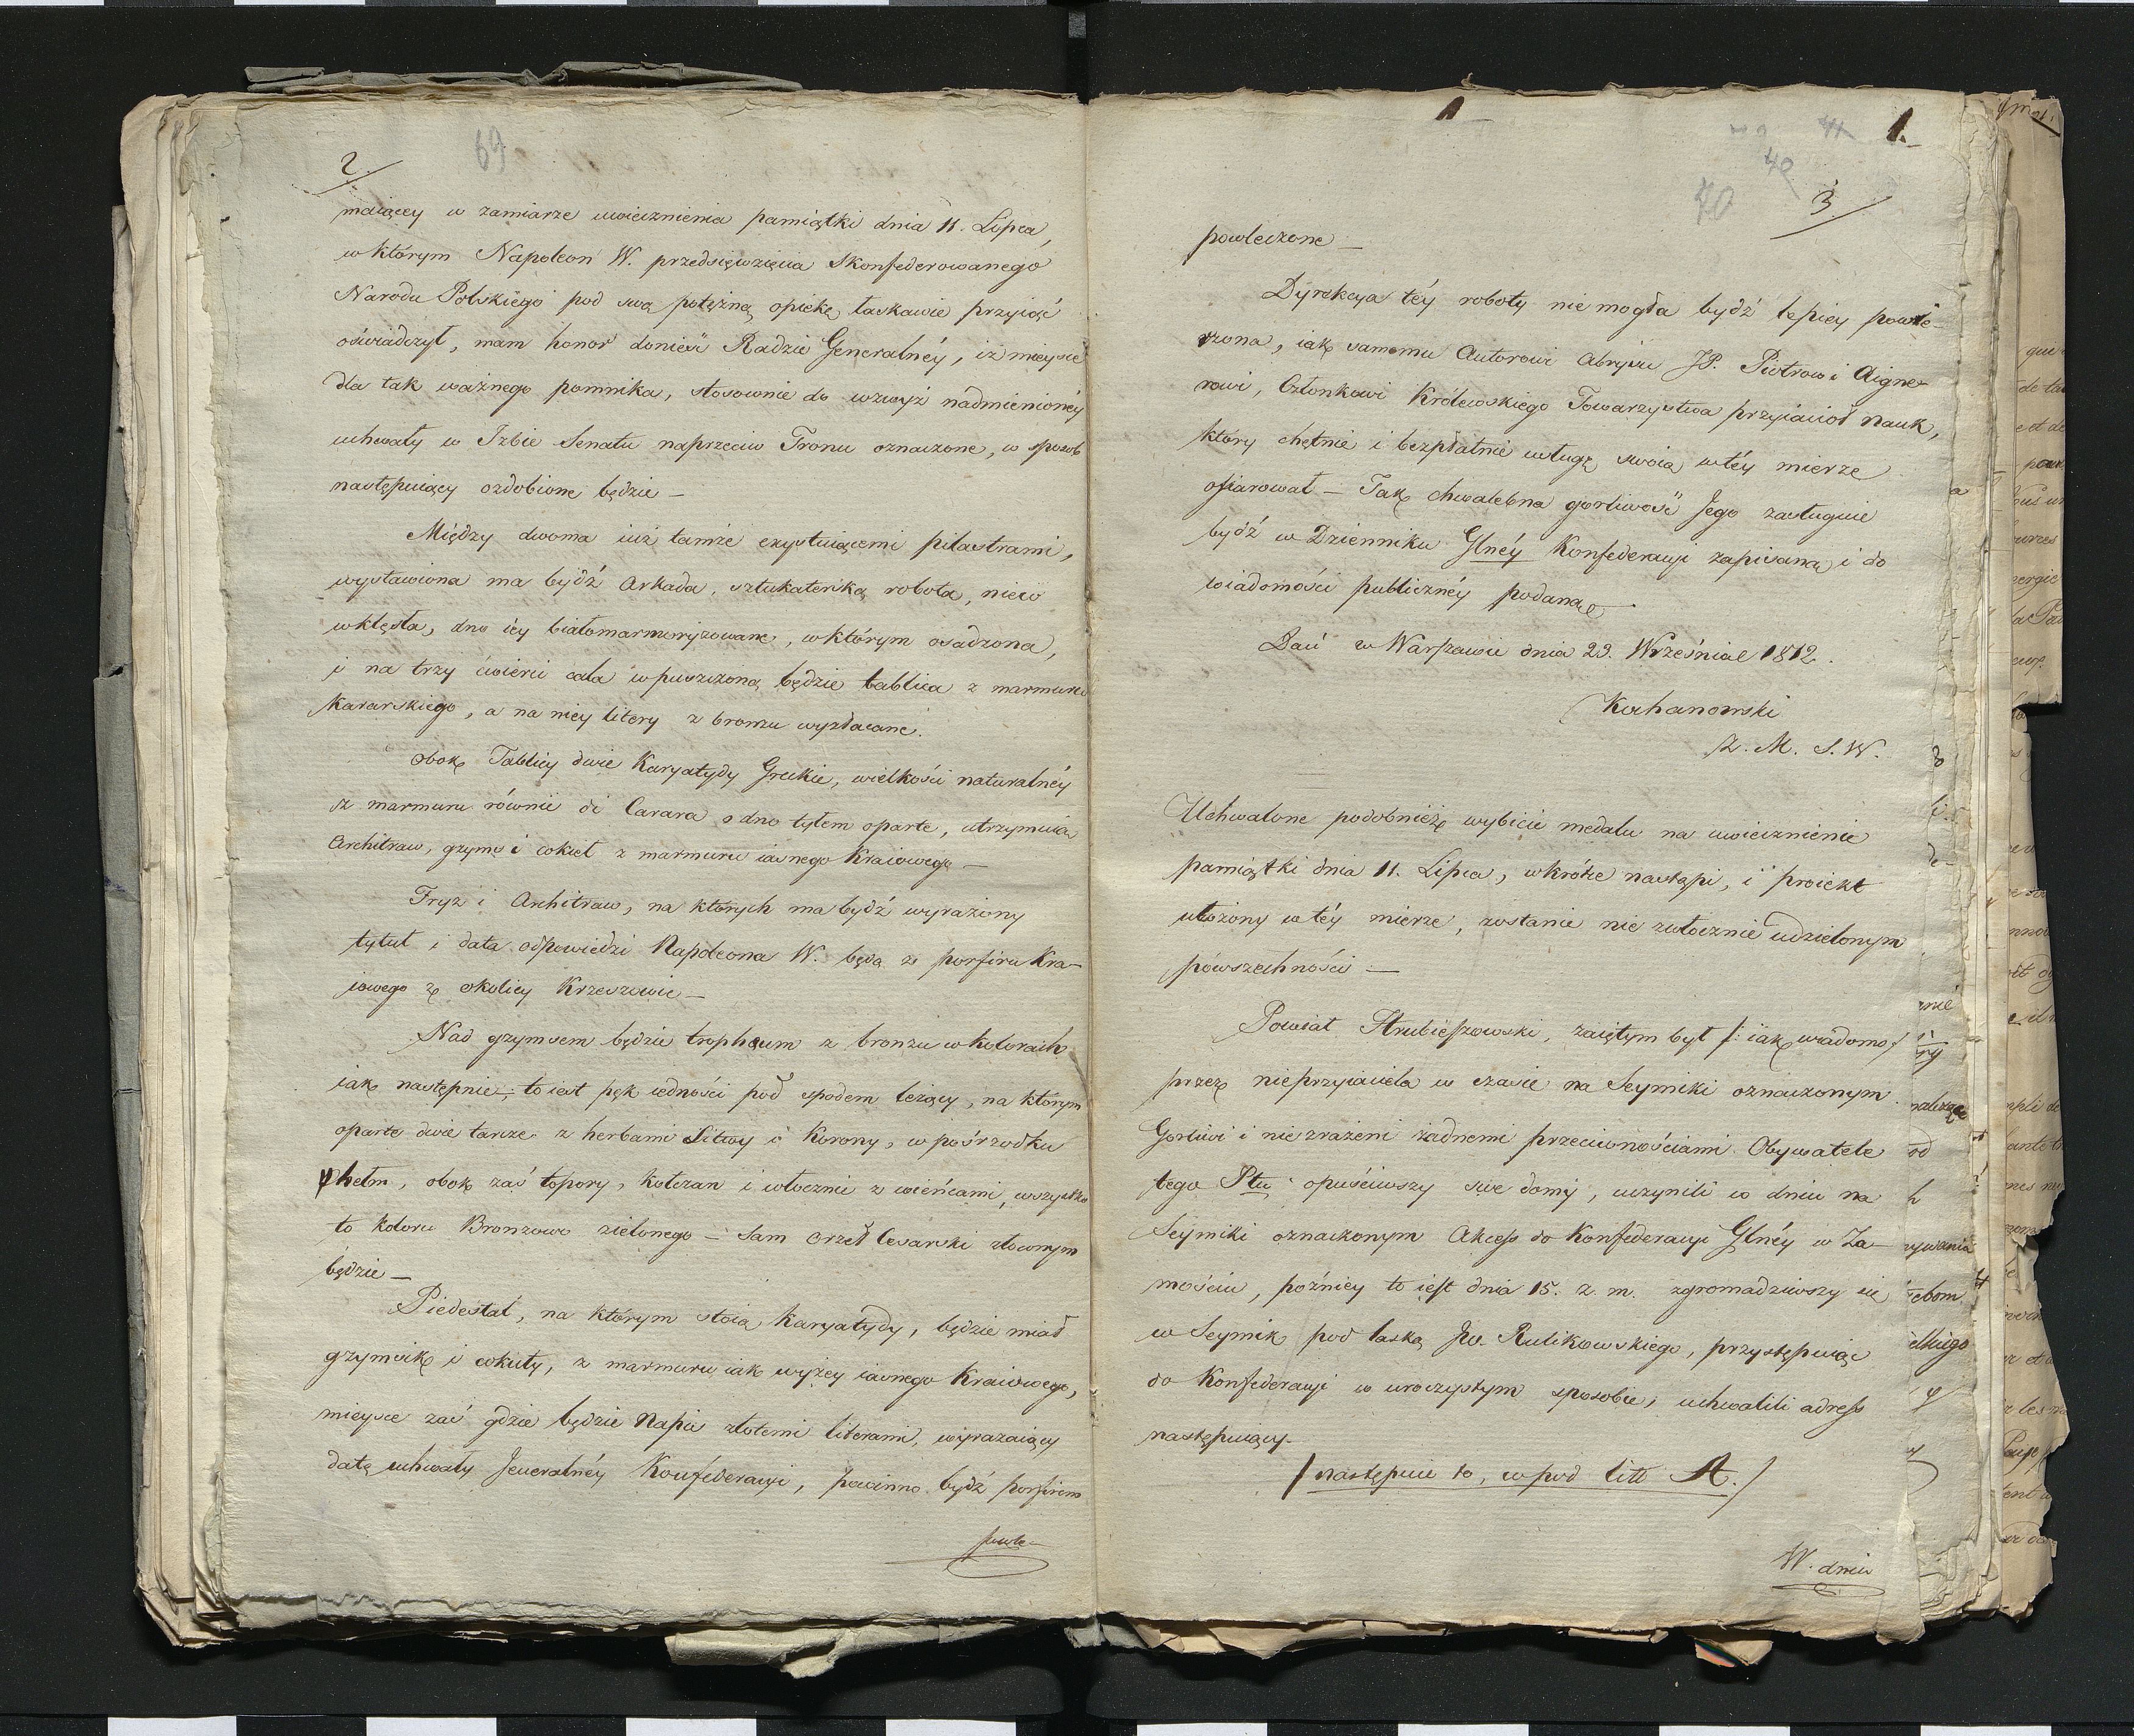 2
69
maiącey w zamiarze uwiecznienia pamiątki dnia 11. Lipca,
w którym Napoleon W. przedsięwzięcia Skonfederowanego
Narodu Polskiego pod swą potężną opiekę łaskawie przyiąć
oświadczył, mam honor donieść Radzie Generalnéy, iż mieysce
dla tak ważnego pomnika, stosownie do wzwyż nadmienionéy
uchwały w Izbie Senatu naprzeciw Tronu oznaczone, w sposob
następuiący ozdobione będzie —
Między dwoma iuż tamże exystuiącemi pilastrami,
wystawiona ma bydź Arkada, sztukaterską robotą, nieco
wklęsła, dno iey białomarmuryzowane, w którym osadzona,
i na trzy ćwierci cala wpuszczoną będzie tablica z marmuru
Kararskiego, a na niey litery z bronzu wyzłacane.
obok Tablicy dwie Karyatydy Greckie, wielkości naturalnéy
z marmuru równie di Carara o dno tyłem oparte, utrzymuią
Architraw, gzyms i cokuł z marmuru iasnego Kraiowego —
Fryz i Architraw, na których ma bydź wyrażony
tytuł i data odpowiedzi Napoleona W. będą z porfiru Kra-
iowego z okolicy Krzeszowic —
Nad gzymsem będzie trophæum z bronzu w kolorach
iak następnie; to iest pęk iedności pod spodem leżący, na którym
oparte dwie tarcze z herbami Litwy i Korony, w pośrzodku
hełm, obok zaś topory, kołczan i włocznie z wieńcami, wszystko
to koloru Bronzowo zielonego — Sam Orzeł Cesarski złoconym
będzie —
Piedestał, na którym stoią Karyatydy, będzie miał
gzymsik i cokuły, z marmuru iak wyżey iasnego Kraiowego,
mieysce zaś gdzie będzie Napis złotemi literami, wyrażaiący
datę uchwały Jeneralnéy Konfederacyi, powinno bydź porfirem
powle-
1
1.
41
40
70
3
powleczone —
Dyrekcya téy roboty nie mogła bydź lepiey powie-
rzona, iak samemu Autorowi Abrysu JP. Piotrowi Aigne-
rowi, Członkowi Królewskiego Towarzystwa przyiacioł nauk,
który chętnie i bezpłatnie usługę swoią w téy mierze
ofiarował — Tak chwalebna gorliwość Jego zasługuie
bydź w Dzienniku Glnéy Konfederacyi zapisaną i do
wiadomości publicznéy podaną —
Dań w Warszawie dnia 29. Września 1812.
Kochanowski
Z. M. S. W.
Uchwalone podobnież wybicie medalu na uwiecznienie
pamiątki dnia 11. Lipca, wkrótce nastąpi, i proiekt
ułożony w téy mierze, zostanie nie zwłocznie udzielonym
powszechności —
Powiat Hrubieszowski, zaiętym był /: iak wiadomo /
przez nieprzyiaciela w czasie na Seymiki oznaczonym.
Gorliwi i niezrażeni żadnemi przeciwnościami Obywatele
tego Ptu opuściwszy swe domy, uczynili w dniu na
Seymiki oznaczonym Akcess do Konfederacyi Glnéy w Za-
mościu, późniey to iest dnia 15. z. m. zgromadziwszy się
w Seymik pod laską Jw. Rulikowskiego, przystępuiąc
do Konfederacyi w uroczystym sposobie, uchwalili adress
następuiący.
/ następuie to, co pod litt A. /
W. dniu